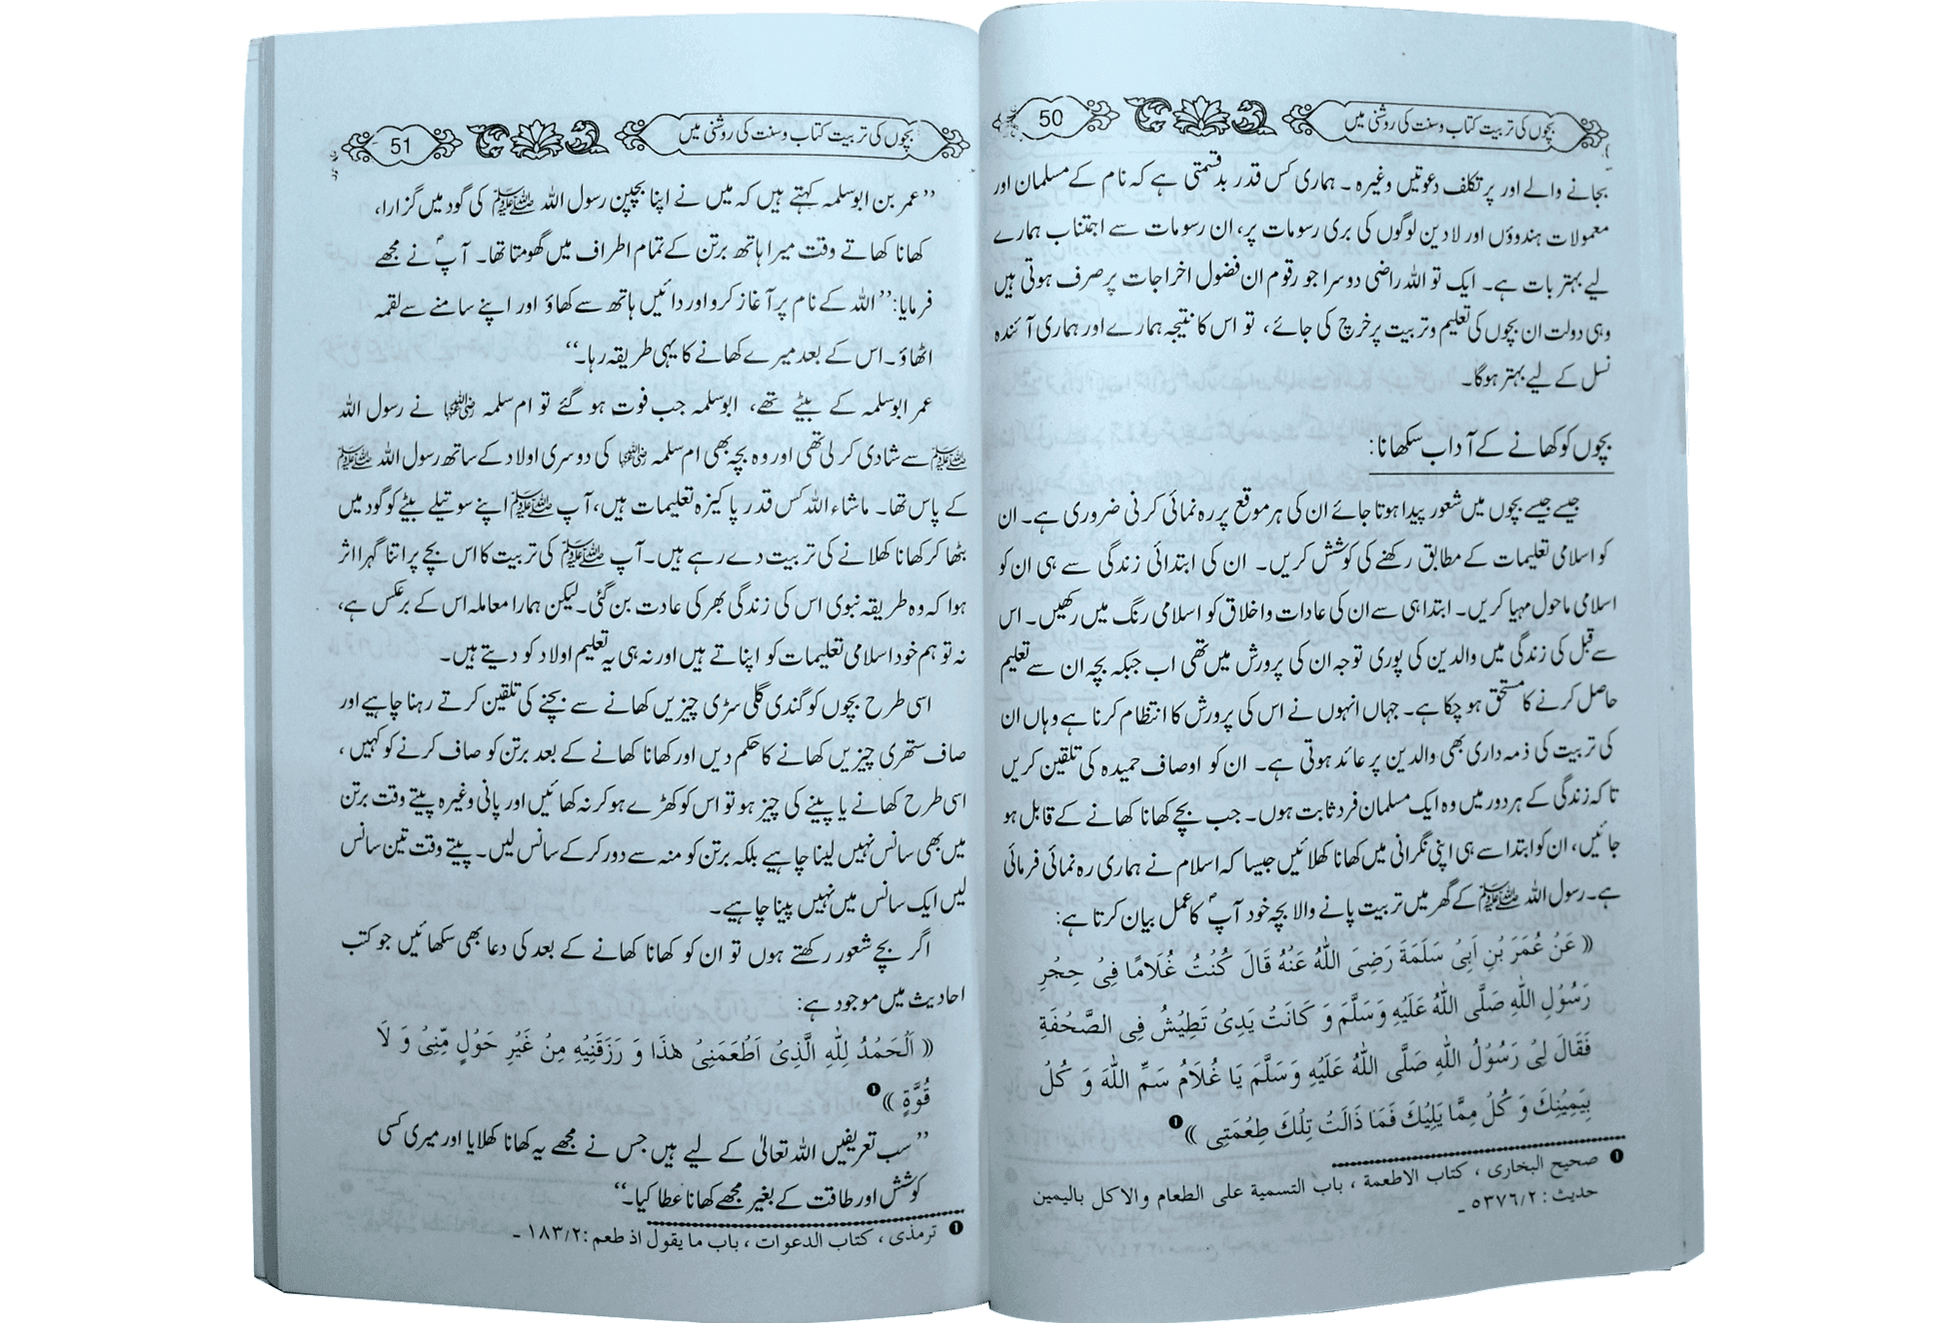 بچوں کی تربیت کتاب و سنت کی روشنی میں
50
بجانے والے اور پر تکلف دعوتیں وغیرہ ۔ ہماری کس قدر بدقسمتی ہے کہ نام کے مسلمان اور
معمولات ہندوؤں اور لادین لوگوں کی بری رسومات پر، ان رسومات سے اجتناب ہمارے
لیے بہتر بات ہے۔ ایک تو اللہ راضی دوسرا جو رقوم ان فضول اخراجات پر صرف ہوتی ہیں
وہی دولت ان بچوں کی تعلیم و تربیت پر خرچ کی جائے ، تو اس کا نتیجہ ہمارے اور ہماری آئندہ
نسل کے لیے بہتر ہوگا۔
بچوں کو کھانے کے آداب سکھانا:
جیسے جیسے بچوں میں شعور پیدا ہوتا جائے ان کی ہر موقع پر رہ نمائی کرنی ضروری ہے۔ ان
کو اسلامی تعلیمات کے مطابق رکھنے کی کوشش کریں۔ ان کی ابتدائی زندگی سے ہی ان کو
اسلامی ماحول مہیا کریں۔ ابتدا ہی سے ان کی عادات و اخلاق کو اسلامی رنگ میں رکھیں۔ اس
سے قبل کی زندگی میں والدین کی پوری توجہ ان کی پرورش میں تھی اب جبکہ بچہ ان سے تعلیم
حاصل کرنے کا مستحق ہو چکا ہے۔ جہاں انہوں نے اس کی پرورش کا انتظام کرنا ہے وہاں ان
کی تربیت کی ذمہ داری بھی والدین پر عائد ہوتی ہے۔ ان کو اوصاف حمیدہ کی تلقین کریں
تا کہ زندگی کے ہر دور میں وہ ایک مسلمان فرد ثابت ہوں۔ جب بچے کھانا کھانے کے قابل ہو
جائیں، ان کو ابتدا سے ہی اپنی نگرانی میں کھانا کھلائیں جیسا کہ اسلام نے ہماری رہ نمائی فرمائی
ہے۔ رسول اللہ ﷺ کے گھر میں تربیت پانے والا بچہ خود آپؐ کا عمل بیان کرتا ہے:
(( عَنْ عُمَرَ بْنِ اَبِیْ سَلَمَةَ رَضِیَ اللّٰهُ عَنْهُ قَالَ کُنْتُ غُلَامًا فِیْ حِجْرِ
رَسُوْلِ اللّٰهِ صَلَّی اللّٰهُ عَلَیْهِ وَسَلَّمَ وَ کَانَتْ یَدِیْ تَطِیْشُ فِی الصَّحْفَةِ
فَقَالَ لِیْ رَسُوْلُ اللّٰهِ صَلَّی اللّٰهُ عَلَیْهِ وَسَلَّمَ یَا غُلَامُ سَمِّ اللّٰهَ وَ کُلْ
بِیَمِیْنِكَ وَ کُلْ مِمَّا یَلِیْكَ فَمَا ذَالَتْ تِلْكَ طِعْمَتِی )) ❶
❶ صحیح البخاری ، کتاب الاطعمة ، باب التسمیة علی الطعام والاکل بالیمین
حدیث : ٥٣٧٦/٢ ۔
بچوں کی تربیت کتاب و سنت کی روشنی میں
51
’’عمر بن ابو سلمہ کہتے ہیں کہ میں نے اپنا بچپن رسول اللہ ﷺ کی گود میں گزارا،
کھانا کھاتے وقت میرا ہاتھ برتن کے تمام اطراف میں گھومتا تھا۔ آپؐ نے مجھے
فرمایا: ’’اللہ کے نام پر آغاز کرو اور دائیں ہاتھ سے کھاؤ اور اپنے سامنے سے لقمہ
اٹھاؤ۔ اس کے بعد میرے کھانے کا یہی طریقہ رہا۔‘‘
عمر ابو سلمہ کے بیٹے تھے، ابو سلمہ جب فوت ہو گئے تو ام سلمہ رضی اللہ عنہا نے رسول اللہ
ﷺ سے شادی کر لی تھی اور وہ بچہ بھی ام سلمہ رضی اللہ عنہا کی دوسری اولاد کے ساتھ رسول اللہ ﷺ
کے پاس تھا۔ ماشاء اللہ کس قدر پاکیزہ تعلیمات ہیں، آپ ﷺ اپنے سوتیلے بیٹے کو گود میں
بٹھا کر کھانا کھلانے کی تربیت دے رہے ہیں۔ آپ ﷺ کی تربیت کا اس بچے پر اتنا گہرا اثر
ہوا کہ وہ طریقہ نبوی اس کی زندگی بھر کی عادت بن گئی۔ لیکن ہمارا معاملہ اس کے برعکس ہے،
نہ تو ہم خود اسلامی تعلیمات کو اپناتے ہیں اور نہ ہی یہ تعلیم اولاد کو دیتے ہیں۔
اسی طرح بچوں کو گندی گلی سڑی چیزیں کھانے سے بچنے کی تلقین کرتے رہنا چاہیے اور
صاف ستھری چیزیں کھانے کا حکم دیں اور کھانا کھانے کے بعد برتن کو صاف کرنے کو کہیں ،
اسی طرح کھانے یا پینے کی چیز ہو تو اس کو کھڑے ہو کر نہ کھائیں اور پانی وغیرہ پیتے وقت برتن
میں بھی سانس نہیں لینا چاہیے بلکہ برتن کو منہ سے دور کر کے سانس لیں۔ پیتے وقت تین سانس
لیں ایک سانس میں نہیں پینا چاہیے۔
اگر بچے شعور رکھتے ہوں تو ان کو کھانا کھانے کے بعد کی دعا بھی سکھائیں جو کتب
احادیث میں موجود ہے:
(( اَلْحَمْدُ لِلّٰهِ الَّذِیْ اَطْعَمَنِیْ هٰذَا وَ رَزَقَنِیْهِ مِنْ غَیْرِ حَوْلٍ مِّنِّیْ وَ لَا
قُوَّةٍ )) ❶
’’سب تعریفیں اللہ تعالیٰ کے لیے ہیں جس نے مجھے یہ کھانا کھلایا اور میری کسی
کوشش اور طاقت کے بغیر مجھے کھانا عطا کیا۔‘‘
❶ ترمذی ، کتاب الدعوات ، باب ما یقول اذ طعم : ١٨٣/٢ ۔